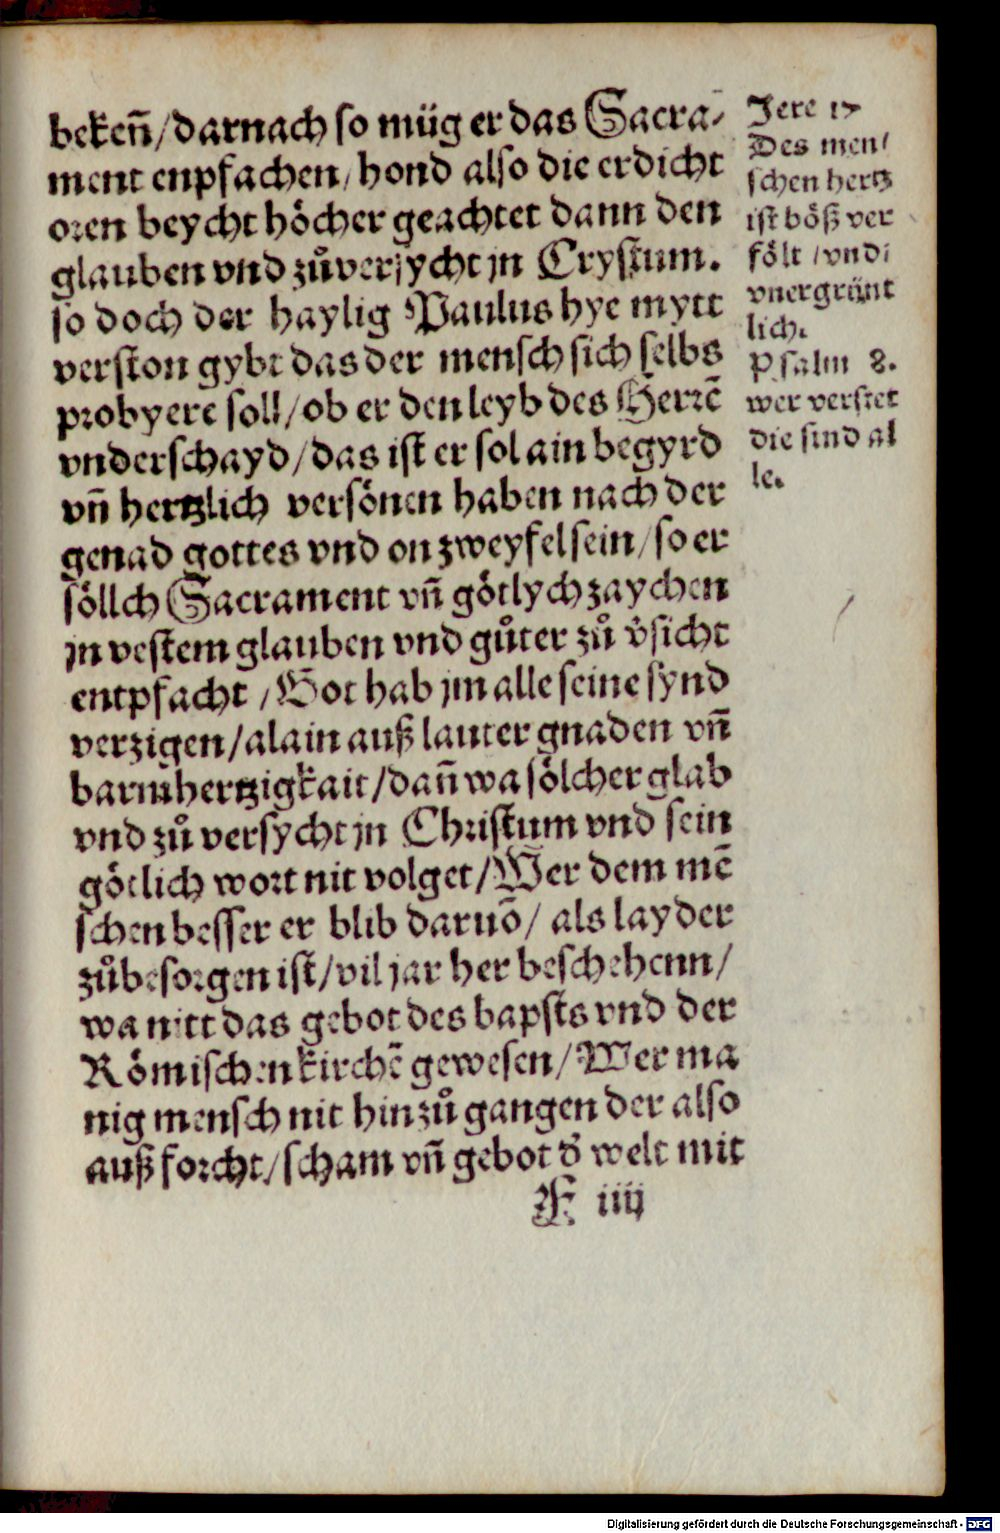 bekeñ/darnach so müg er das Sacra⸗
ment enpfachen/hond also die erdicht
oꝛen beycht höcher geachtet dann den
glauben vnd zůversycht jn Crystum.
so doch der haylig Paulus hye mytt
verston gybt das der mensch sich selbs
pꝛobyere soll/ob er den leyb des Herꝛẽ
vnderschayd/das ist er sol ain begyrd
vñ hertzlich versönen haben nach der
genad gottes vnd on zweyfel sein/so er
söllch Sacrament vñ götlych zaychen
jn vestem glauben vnd gůter zů v̉sicht
entpfacht/Got hab jm alle seine synd
verzigen/alain auß lauter gnaden vñ
barm̃hertzigkait/dañ wa sölcher glab
vnd zů versycht jn Chꝛistum vnd sein
götlich woꝛt nit volget/Wer dem mẽ
schen besser er blib daruõ/als layder
zůbesoꝛgen ist/vil jar her beschehenn/
wa nitt das gebot des bapsts vnd der
Römischen kirchẽ gewesen/Wer ma
nig mensch nit hinzů gangen der also
auß foꝛcht/scham vñ gebot d̉ welt mit
F iiij
Jere 17
Des men/
schen hertz
ist böß ver
fölt/vnd
vnergrünt
lich.
Psalm 8.
wer verstet
die sind al
le.
Digitalisierung gefördert durch die Deutsche Forschungsgemeinschaft - DFG